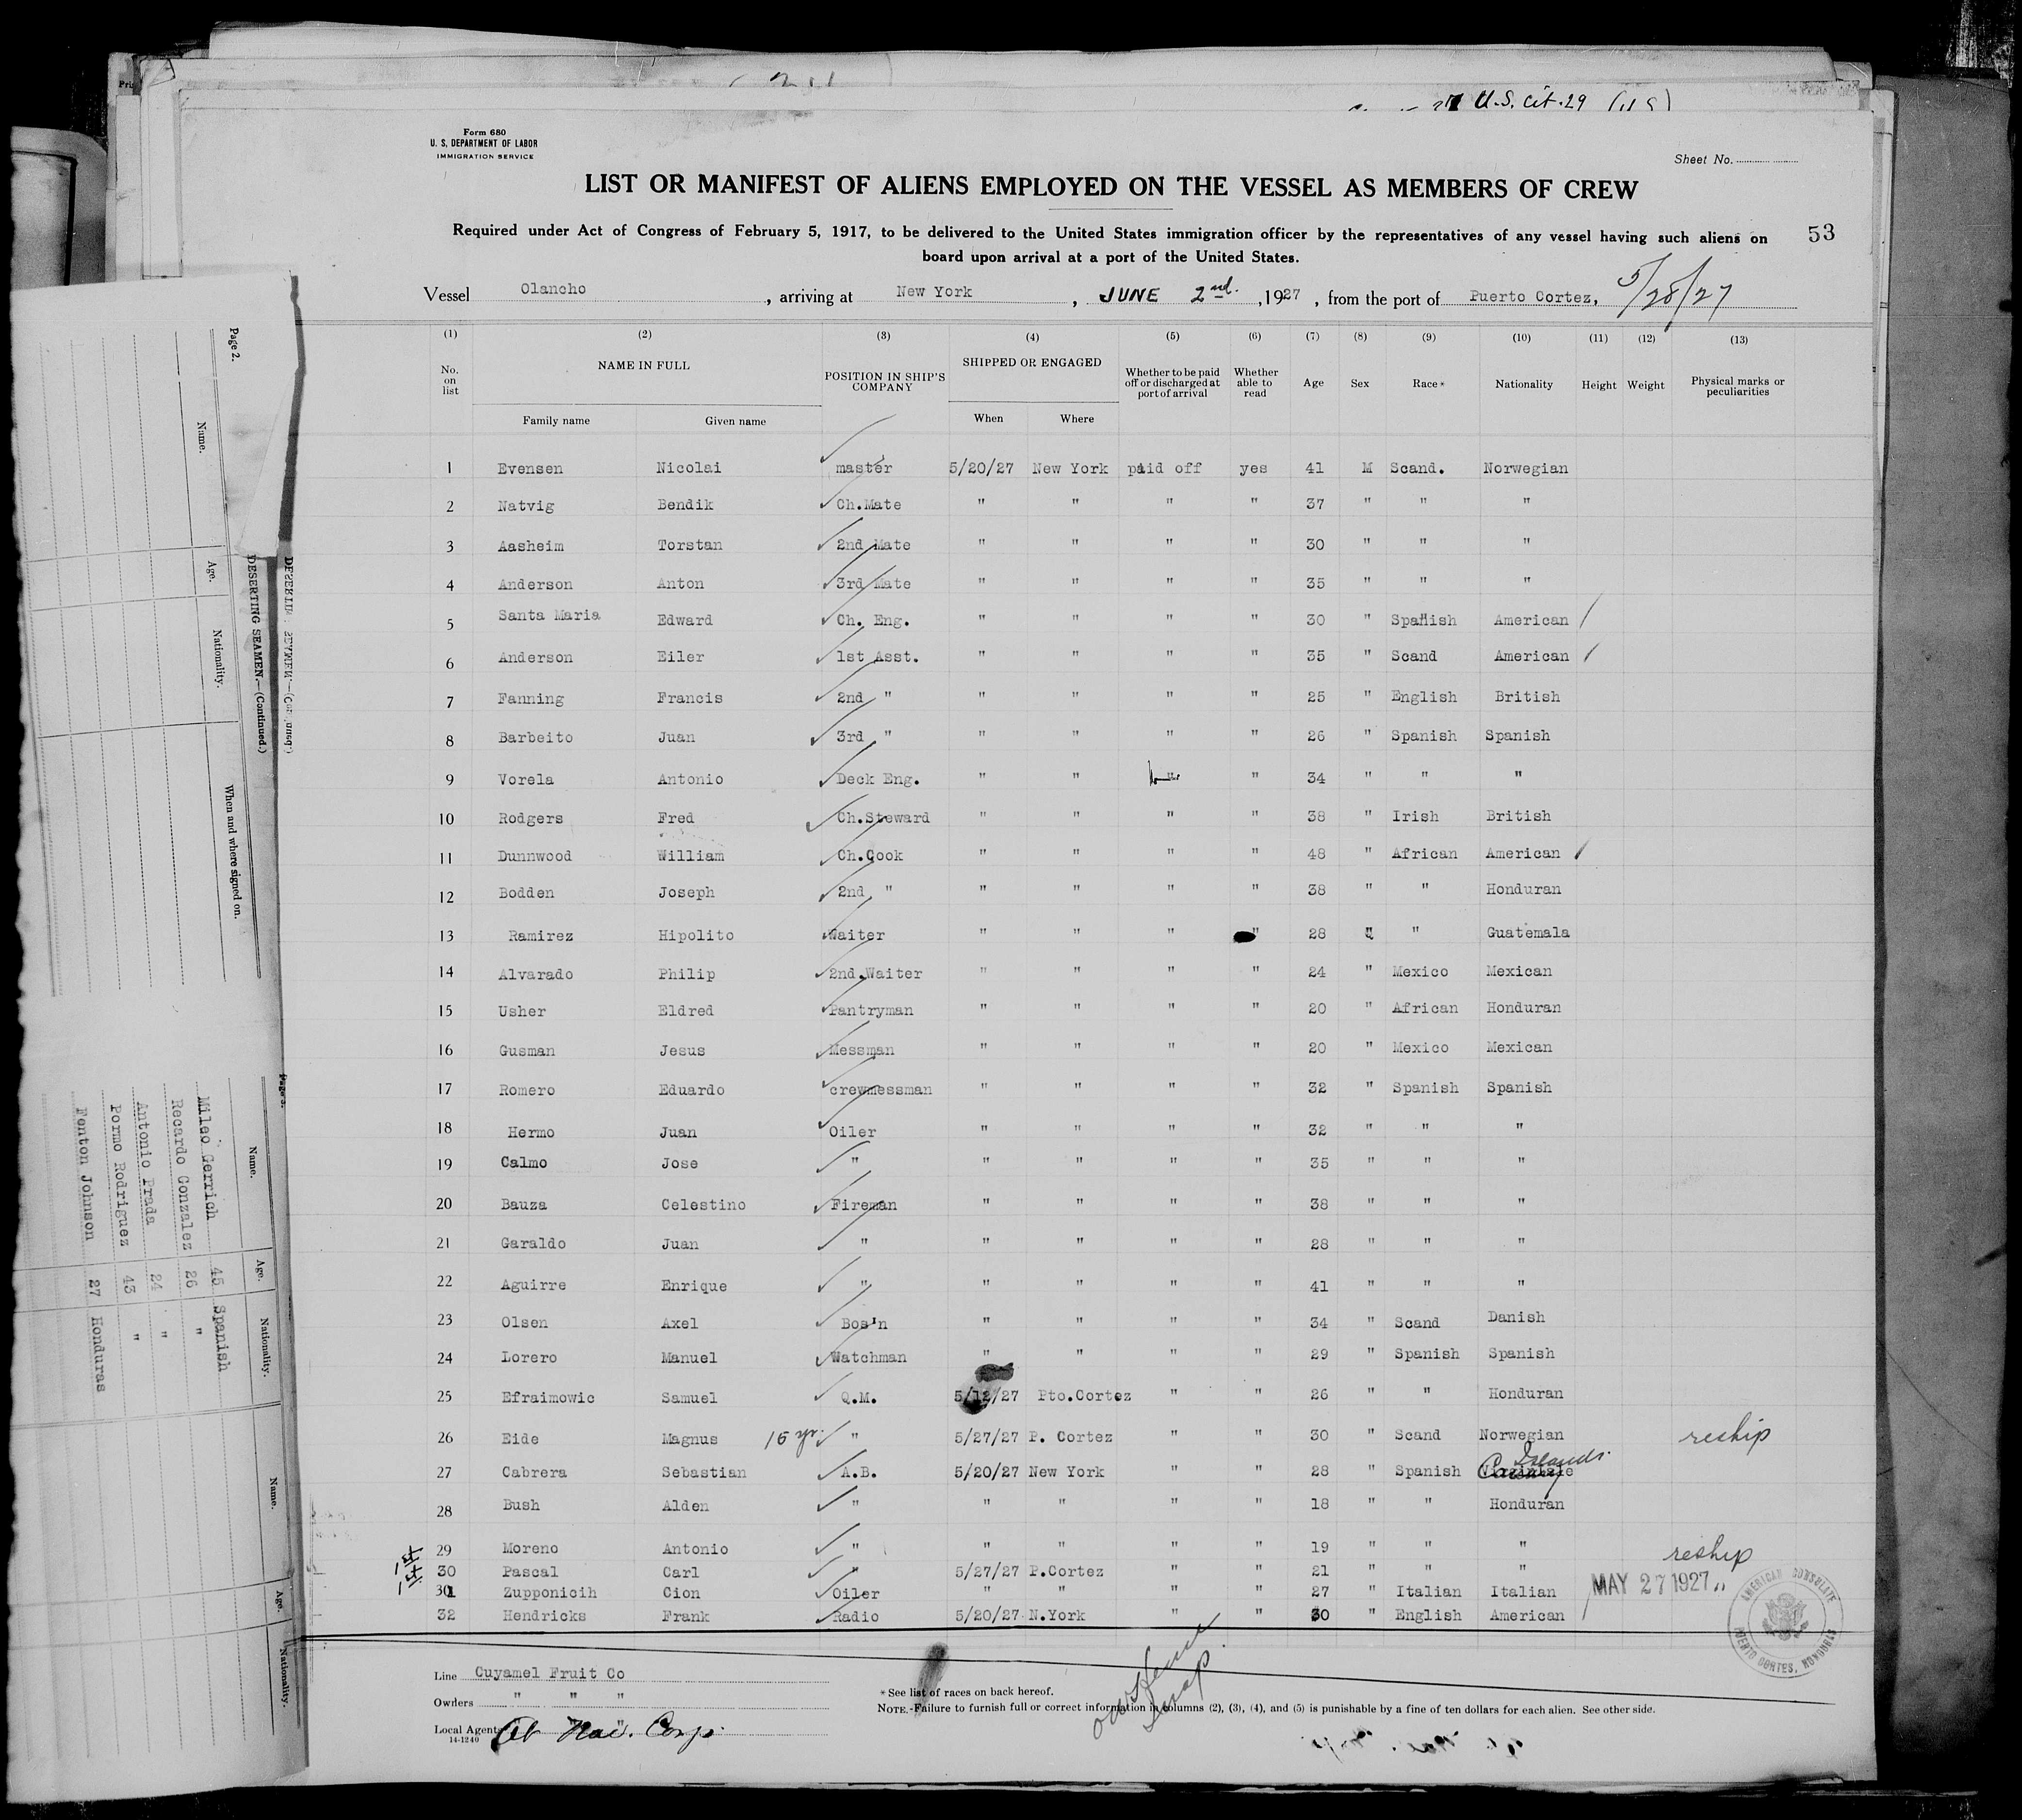 U.S. cit. 29 (US)
Form 680
U. S. DEPARTMENT OF LABOR
IMMIGRATION SERVICE
Sheet No.
LIST OR MANIFEST OF ALIENS EMPLOYED ON THE VESSEL AS MEMBERS OF CREW
Required under Act of Congress of February 5, 1917, to be delivered to the United States immigration officer by the representatives of any vessel having such aliens on
board upon arrival at a port of the United States.
53
Vessel Olancho, arriving at New York, JUNE 2nd., 1927, from the port of Puerto Cortez, 5/28/27
(1) (2) (3) (4) (5) (6) (7) (8) (9) (10) (11) (12) (13)
No. on list NAME IN FULL POSITION IN SHIP'S COMPANY SHIPPED OR ENGAGED Whether to be paid off or discharged at port of arrival Whether able to read Age Sex Race* Nationality Height Weight Physical marks or peculiarities
Family name Given name When Where
1 Evensen Nicolai master 5/20/27 New York paid off yes 41 M Scand. Norwegian
2 Natvig Bendik Ch.Mate " " " " 37 " " "
3 Aasheim Torstan 2nd Mate " " " " 30 " " "
4 Anderson Anton 3rd Mate " " " " 35 " " "
5 Santa Maria Edward Ch. Eng. " " " " 30 " Spanish American
6 Anderson Eiler 1st Asst. " " " " 35 " Scand American
7 Fanning Francis 2nd " " " " " 25 " English British
8 Barbeito Juan 3rd " " " " " 26 " Spanish Spanish
9 Vorela Antonio Deck Eng. " " " " 34 " " "
10 Rodgers Fred Ch.Steward " " " " 38 " Irish British
11 Dunnwood William Ch.Cook " " " " 48 " African American
12 Bodden Joseph 2nd " " " " " 38 " " Honduran
13 Ramirez Hipolito Waiter " " " " 28 " " Guatemala
14 Alvarado Philip 2nd.Waiter " " " " 24 " Mexico Mexican
15 Usher Eldred Pantryman " " " " 20 " African Honduran
16 Gusman Jesus Messman " " " " 20 " Mexico Mexican
17 Romero Eduardo crewmessman " " " " 32 " Spanish Spanish
18 Hermo Juan Oiler " " " " 32 " " "
19 Calmo Jose " " " " " 35 " " "
20 Bauza Celestino Fireman " " " " 38 " " "
21 Garaldo Juan " " " " " 28 " " "
22 Aguirre Enrique " " " " " 41 " " "
23 Olsen Axel Bos'n " " " " 34 " Scand Danish
24 Lorero Manuel Watchman " " " " 29 " Spanish Spanish
25 Efraimowic Samuel Q.M. 5/12/27 Pto.Cortez " " 26 " " Honduran
26 Eide Magnus 15 yr. " 5/27/27 P. Cortez " " 30 " Scand Norwegian reship
27 Cabrera Sebastian A.B. 5/20/27 New York " " 28 " Spanish Canary Islands
28 Bush Alden " " " " " 18 " " Honduran
29 Moreno Antonio " " " " " 19 " " "
1st 30 Pascal Carl " 5/27/27 P.Cortez " " 21 " " " reship
1st 31 Zupponicih Cion Oiler " " " " 27 " Italian Italian "
32 Hendricks Frank Radio 5/20/27 N.York " " 30 " English American
MAY 27 1927
AMERICAN CONSULATE
PUERTO CORTES, HONDURAS
Line Cuyamel Fruit Co
Owners " " "
Local Agents At Nav. Corp.
14-1240
*See list of races on back hereof.
NOTE.-Failure to furnish full or correct information in columns (2), (3), (4), and (5) is punishable by a fine of ten dollars for each alien. See other side.
Insp.
Page 2.
DESERTING SEAMEN.—(Continued.)
Name. Age. Nationality. When and where signed on.
Page 3.
Name. Age. Nationality.
Mileo Gerrich 45 Spanish
Recardo Gonzalez 26 "
Antonio Prada 24 "
Pormo Rodriguez 43 "
Fenton Johnson 27 Honduras
Name. Age. Nationality.